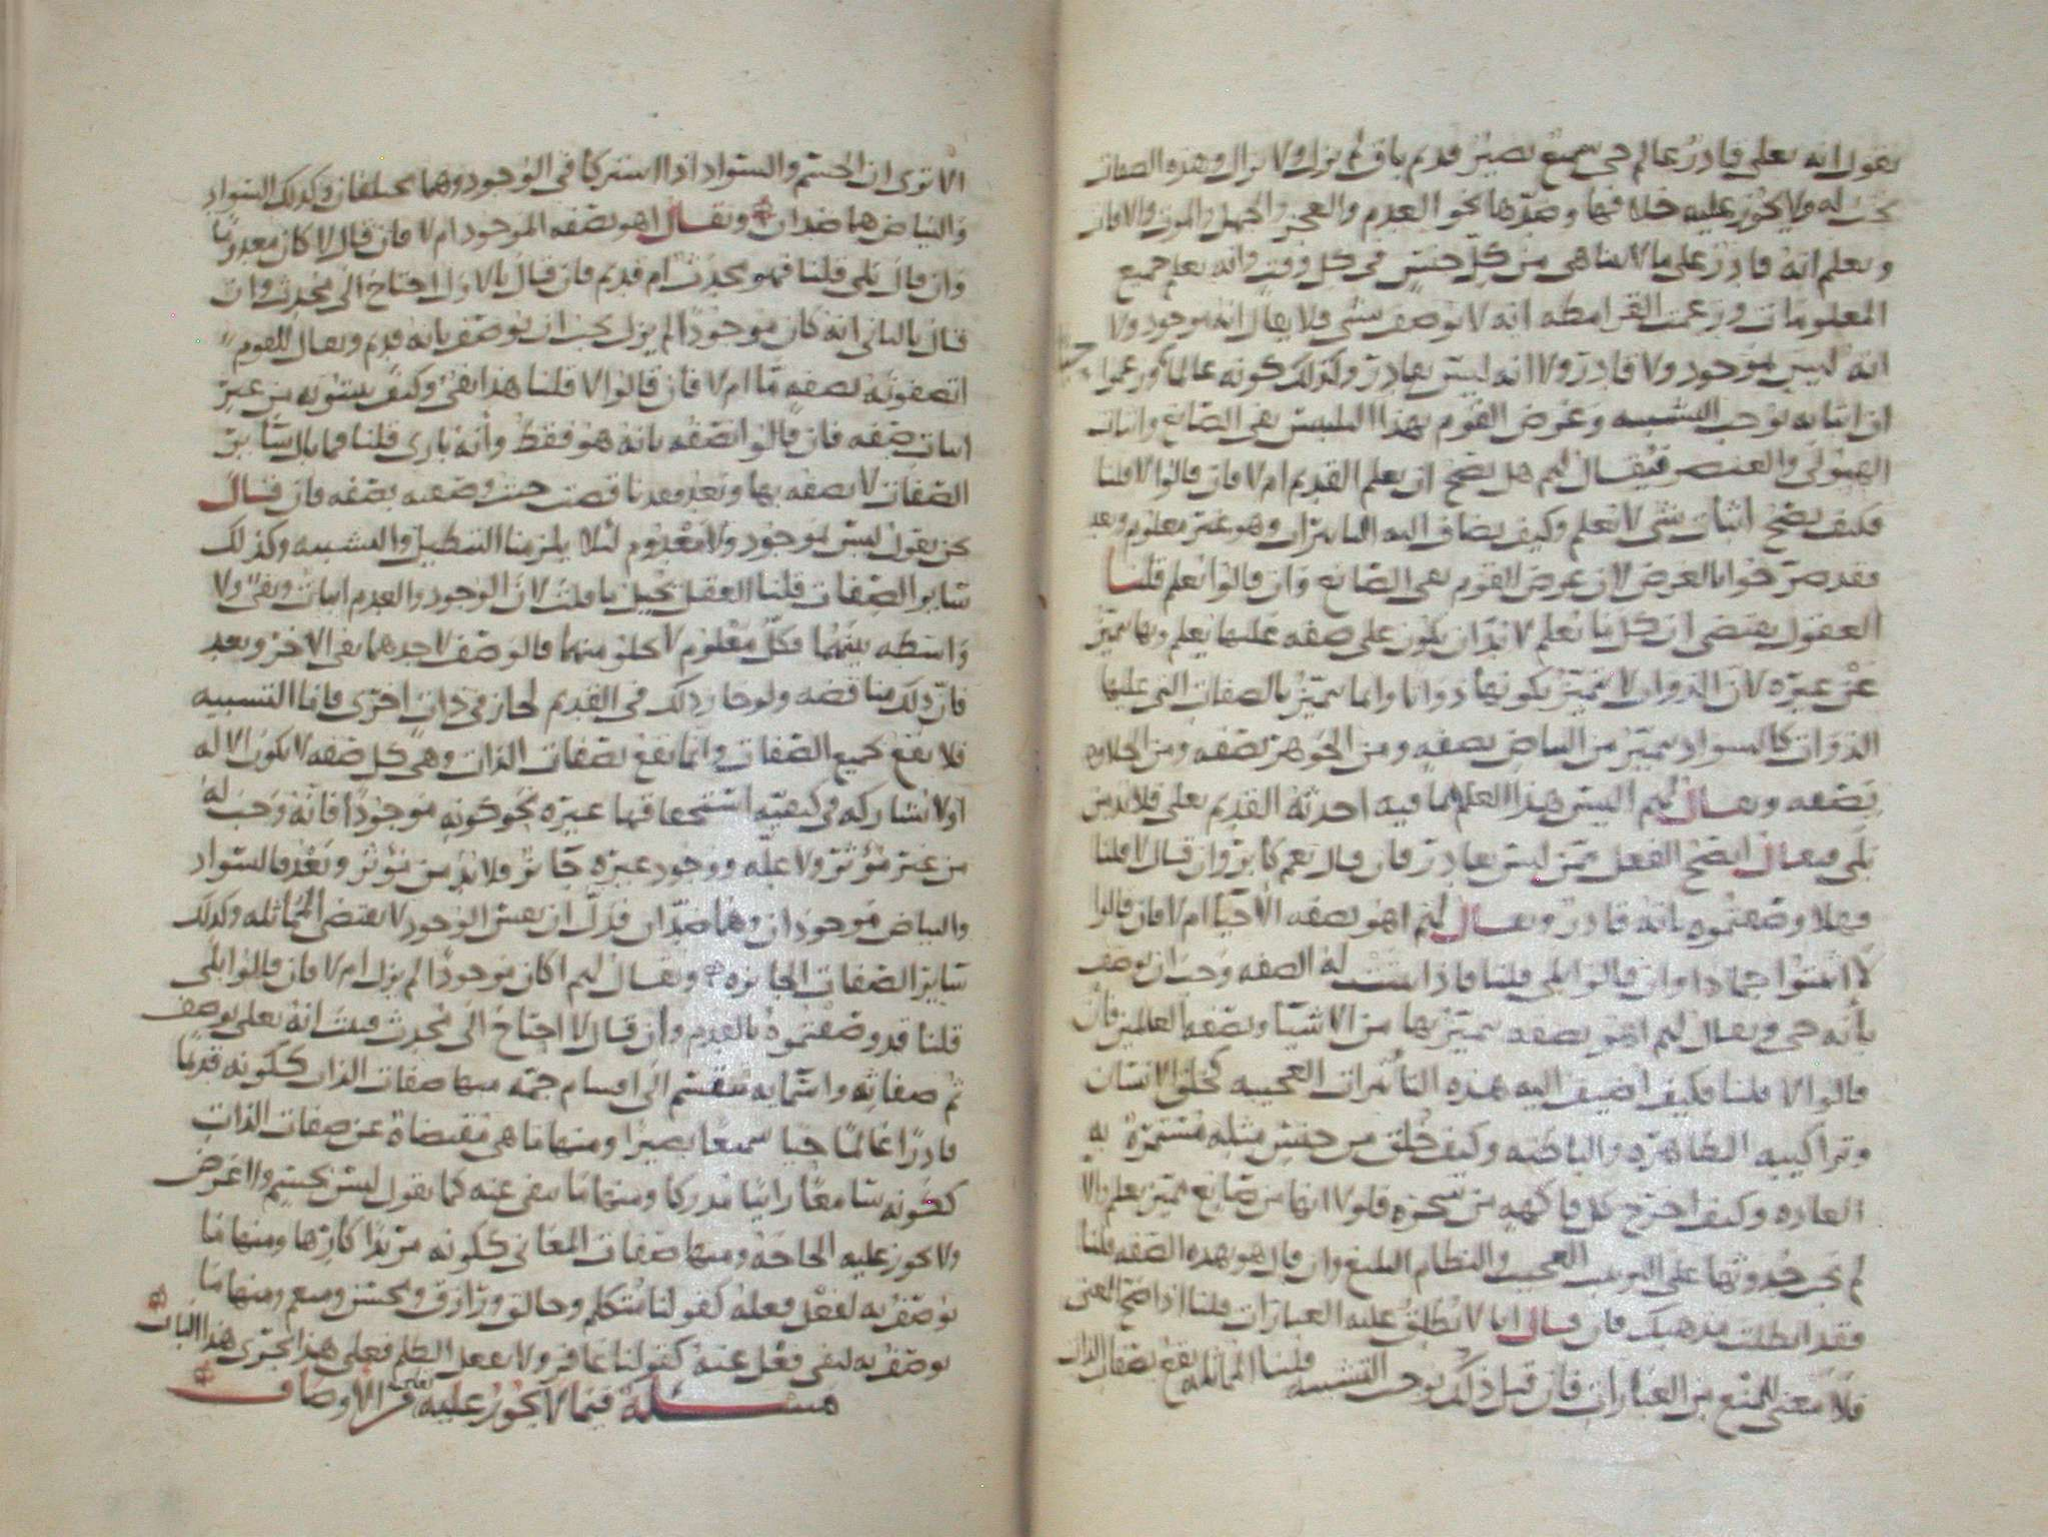 نقول انه تعلى قادر عالم حى سميع بصير قديم باق لم يزل ولا يزال وهذه الصفات
تجب له ولا يجوز عليه خلافها وضدها نحو العدم والعجز والجهل والموت والافات
ونعلم انه قادر على ما لا يتناهى من كل جنس فى كل وقت وانه يعلم جميع
المعلومات وزعمت القرامطه انه لا يوصف بشى فلا يقال انه موجود ولا
انه ليس بموجود ولا قادر ولا انه ليس بقادر وكذلك كونه عالما وزعموا
ان اثباته يوجب التشبيه وغرض القوم بهذا التلبيس نفى الصانع واثبات
الهيولى والعنصر فيقال لهم هل يصح ان يعلم القديم ام لا فان قالوا لا قلنا
فكيف يصح اثبات شى لا يعلم وكيف يضاف اليه التاثيرات وهو غير معلوم وبعد
فقد صرحوا بالغرض لان غرض القوم نفى الصانع وان قالوا نعلم قلنا
العقول يقتضى ان كل ما يعلم لا بد ان يكون على صفه عليها يعلم وبها يتميز
عن غيره لان الذوات لا تتميز بكونها ذواتا وانما تتميز بالصفات التى عليها
الذوات كالسواد يتميز من البياض بصفه ومن الجوهر بصفه ومن الحلاوه
بصفه ويقال لهم اليس هذا العلم بما فيه احدثه القديم تعلى فلا بد من
بلى فيقال ايصح الفعل ممن ليس بقادر فان قال نعم كابر وان قال لا قلنا
فهلا وصفتموه بانه قادر ويقال لهم اهو بصفه الاحيا ام لا فان قالوا
لا اثبتوا جمادا وان قالوا بلى قلنا فاذا اثبتت له الصفه وجب ان يوصف
بأنه حى ويقال لهم اهو بصفه يتميز بها من الاشيا وبصفه العالمين فان
قالوا لا قلنا فكيف اضيف اليه هذه التأثيرات العجيبه كخلق الانسان
وتراكيبه الظاهره والباطنه وكيف خلق من جنس مثله مستمرة به
العاده وكيف اخرج كل فاكهه من شجره فلولا انها من صانع مميز يعلم والا
لم يجز حدوثها على الترتيب العجيب والنظام البليغ وان قال هو بهذه الصفه قلنا
فقد ابطلت مذهبك فان قال انا لا نطلق عليه العبارات قلنا اذا صح المعنى
فلا معنى للمنع من العبارات فان قيل ذلك يوجب التشبيه قلنا المماثله يقع بصفات الذات
الا ترى ان الجسم والسواد اذا اشتركا فى الوجود وهما مختلفان وكذلك السواد
والبياض هما ضدان ويقال اهو بصفه الموجود ام لا فان قال لا كان معدوما
وان قال بلى قلنا فهو محدث ام قديم فان قال بالاول احتاج الى محدث وان
قال بالثانى انه كان موجودا لم يزل يجب ان يوصف بانه قديم ويقال للقوم
اتصفونه بصفه ما ام لا فان قالوا لا قلنا هذا نفى وكيف يثبتونه من غير
اثبات صفه فان قالوا نصفه بانه هو فقط وأنه بارى قلنا فما بال سائر
الصفات لا نصفه بها وبعد فقد ناقضت حيث وصفته بصفه فان قال
نحن نقول ليس بموجود ولا معدوم لئلا يلزمنا التعطيل والتشبيه وكذلك
سائر الصفات قلنا العقل يحيل ما قلت لان الوجود والعدم اثبات ونفى ولا
واسطه بينهما فكل معلوم لا يخلو منهما فالوصف لاحدهما نفى الاخر وبعد
فان ذلك مناقضه ولو جاز ذلك فى القديم لجاز فى ذات اخرى فاما التشبيه
فلا يقع بجميع الصفات وانما يقع بصفات الذات وهى كل صفه لا تكون الا له
او لا يشاركه فى كيفيه استحقاقها غيره نحو كونه موجودا فانه وجب له
من غير مؤثر ولا عله ووجود غيره جائز فلا بد من مؤثر وبعد فالسواد
والبياض موجودان وهما ضدان فدل ان نفس الوجود لا يقتضى المماثله وكذلك
سائر الصفات الجائزه ويقال لهم اكان موجودا لم يزل ام لا فان قالوا بلى
قلنا قد وصفتموه بالقدم وان قال لا احتاج الى محدث فثبت انه تعلى يوصف
ثم صفاته واسمائه تنقسم الى اقسام جمه منها صفات الذات ككونه قديما
قادرا عالما حيا سميعا بصيرا ومنها ما هى مقتضاة عن صفات الذات
ككونه سامعا رائيا مدركا ومنها ما ينفى عنه كما نقول ليس بجسم ولا عرض
ولا يجوز عليه الحاجه ومنها صفات المعانى ككونه مريدا كارها ومنها ما
يوصف به لفعل فعله كقولنا متكلم وخالق ورازق ومحسن ومنعم ومنها ما
يوصف به لنفى فعل عنه كقولنا غافر ولا يفعل الظلم فعلى هذا يجرى هذا الباب
مسئلة فيما لا يجوز عليه تعلى من الاوصاف